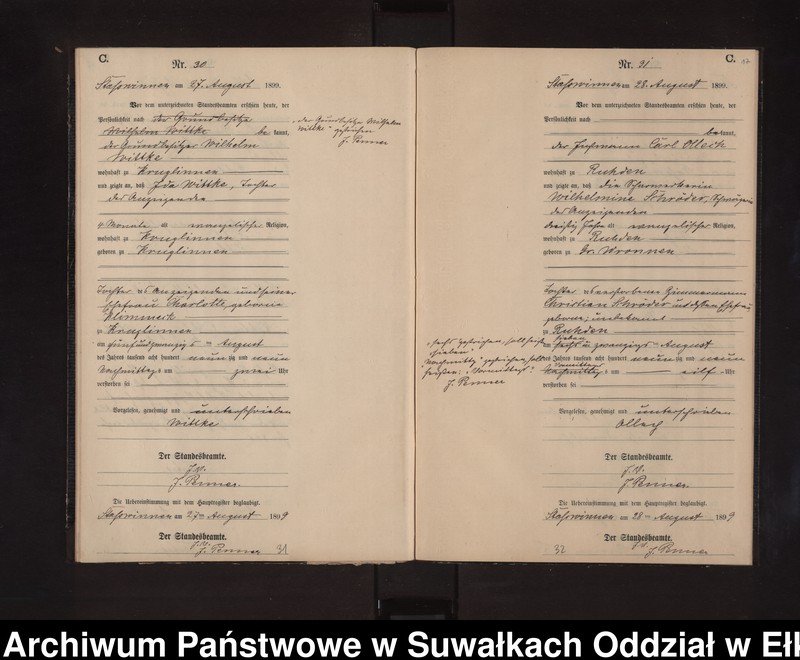 C.
Nr. 30
Stassowinnen am 27. August 1899.
Vor dem unterzeichneten Standesbeamten erschien heute, der
Persönlichkeit nach der Grundbesitzer
Wilhelm Wittke be kannt,
der Grundbesitzer Wilhelm
Wittke
wohnhaft zu Kruglinnen
und zeigte an, daß Ida Wittke, Tochter
des Anzeigenden
4 Monate alt evangelische Religion,
wohnhaft zu Kruglinnen
geboren zu Kruglinnen
Tochter des Anzeigenden und seiner
Ehefrau Charlotte, geborene
Klimmeck
zu Kruglinnen
am fünfundzwanzigsten August
des Jahres tausend acht hundert neunzig und neun
Nachmittags um zwei Uhr
verstorben sei
Vorgelesen, genehmigt und unterschrieben
Wittke
Der Standesbeamte.
J. V.
J. Penner.
Die Uebereinstimmung mit dem Hauptregister beglaubigt.
Stassowinnen am 27ten August 1899
Der Standesbeamte.
J. V.
J. Penner
31
"der Grundbesitzer Wilhelm
Wittke" gestrichen
J. Penner
C.
Nr. 31
Stassowinnen am 28. August 1899.
Vor dem unterzeichneten Standesbeamten erschien heute, der
Persönlichkeit nach
bekannt,
der Carl Olleck
wohnhaft zu Ruhden
und zeigte an, daß die
Wilhelmine Schröder, Schwägerin
des Anzeigenden
dreißig Jahre alt evangelischer Religion,
wohnhaft in Ruhden
geboren zu Gr. Wronnen
Tochter des verstorbenen Zimmermann
Christian Schröder und dessen Ehefrau
geborene, unbekannt
zu Ruhden
sieben
am sechs u zwanzigsten August
des Jahres tausend acht hundert neunzig und neun
Vormittags
Nachmittags um eilf Uhr
verstorben sei
Vorgelesen, genehmigt und unterschrieben
Olleck
Der Standesbeamte.
J. V.
J. Penner
Die Uebereinstimmung mit dem Hauptregister beglaubigt.
Stassowinnen am 28ten August 1899
Der Standesbeamte.
J. V.
J. Penner
32
"sechs" gestrichen, soll heißen
"sieben"
"Nachmittags" gestrichen, soll
heißen: "Vormittags"
J. Penner
Archiwum Państwowe w Suwałkach Oddział w Ełk